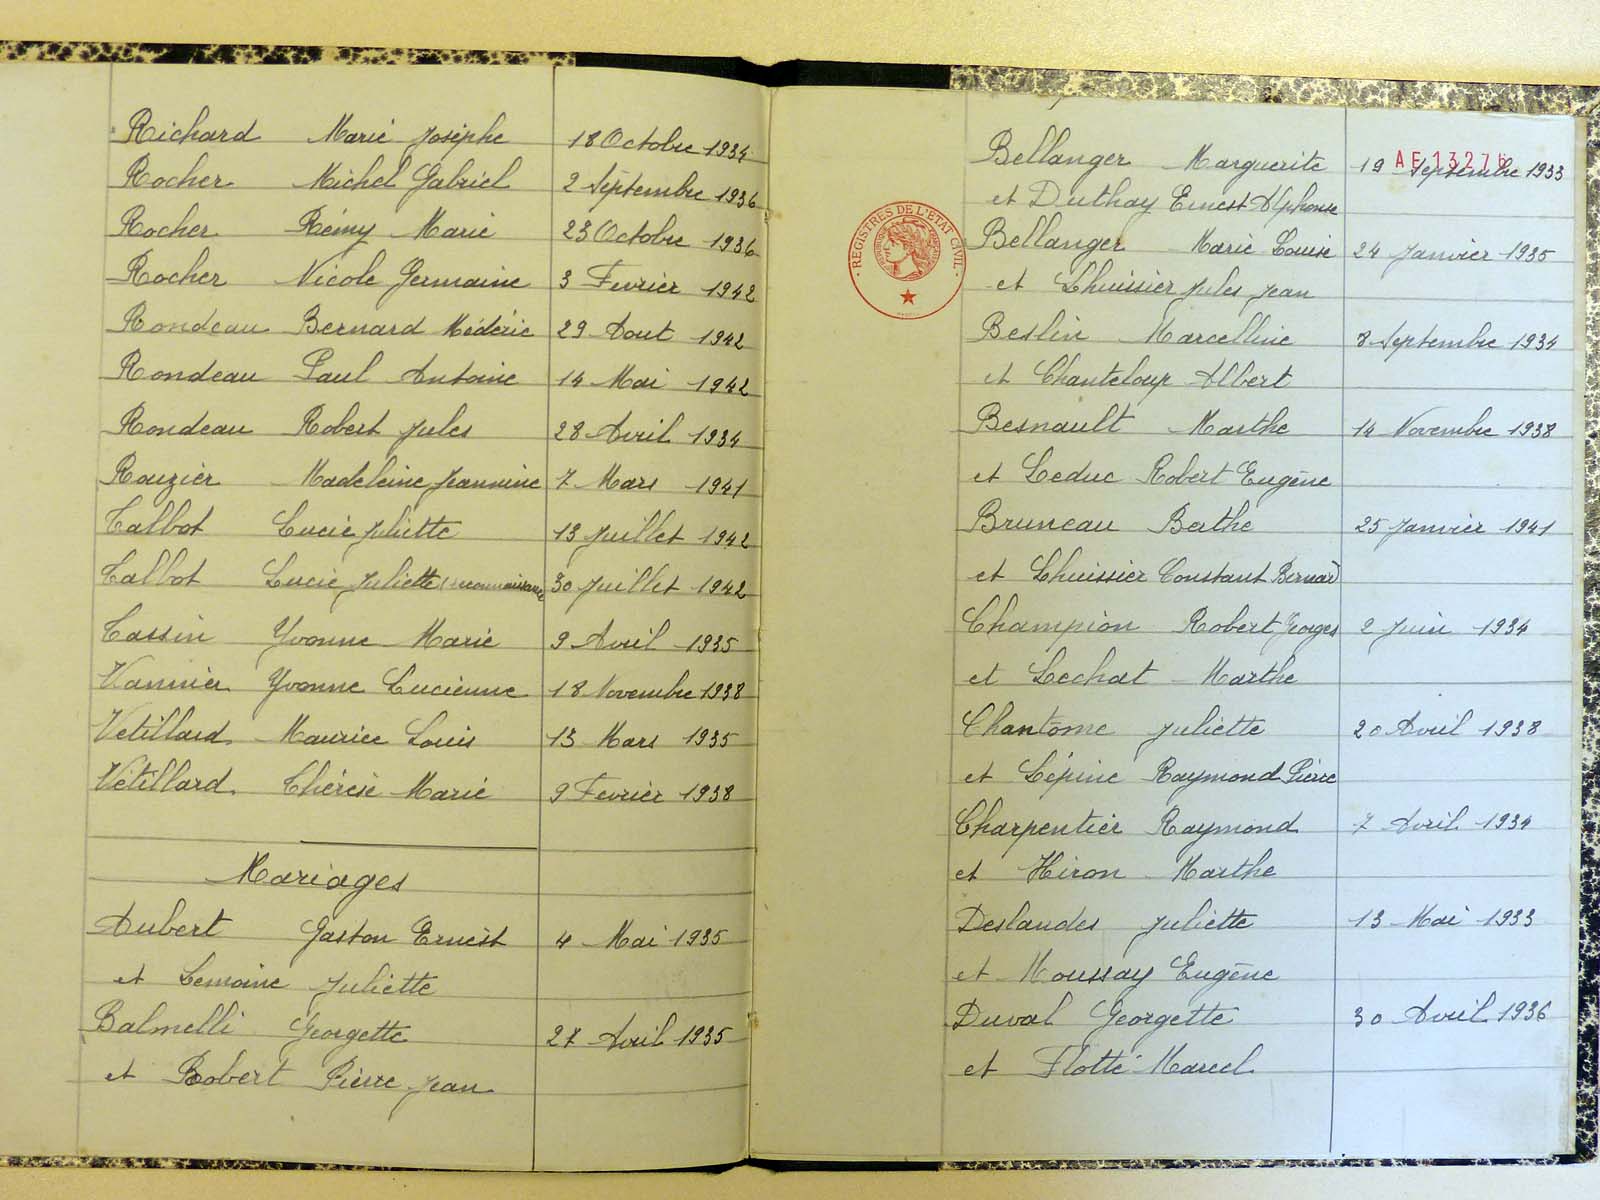 Richard Marie Josèphe 18 Octobre 1934
Rocher Michel Gabriel 2 Septembre 1936
Rocher Rémy Marie 23 Octobre 1936
Rocher Nicole Germaine 3 Fevrier 1942
Rondeau Bernard Médéric 29 Aout 1942
Rondeau Paul Antoine 14 Mai 1942
Rondeau Robert Jules 28 Avril 1934
Rouzier Madeleine Jeannine 7 Mars 1941
Talbot Lucie Juliette 13 Juillet 1942
Talbot Lucie Juliette (reconnaissance 30 Juillet 1942
Tassin Yvonne Marie 9 Avril 1935
Vannier Yvonne Lucienne 18 Novembre 1938
Vétillard Maurice Louis 13 Mars 1935
Vétillard Thérèse Marie 9 Fevrier 1938
Mariages
Aubert Gaston Ernest 4 Mai 1935
et Lemoine Juliette
Balmelli Georgette 27 Avril 1935
et Robert Pierre Jean
REGISTRES DE L'ETAT CIVIL
Bellanger Marguerite 19 Septembre 1933
AE 1327
et Duthay Ernest Alphonse
Bellanger Marie Louise 24 Janvier 1935
et Lhuissier Jules Jean
Beslin Marcelline 8 Septembre 1934
et Chanteloup Albert
Besnault Marthe 14 Novembre 1938
et Leduc Robert Eugène
Bruneau Berthe 25 Janvier 1941
et Lhuissier Constant Bernard
Champion Robert Georges 2 Juin 1934
et Lechat Marthe
Chantôme Juliette 20 Avril 1938
et Lépine Raymond Pierre
Charpentier Raymond 7 Avril 1934
et Hiron Marthe
Deslandes Juliette 13 Mai 1933
et Moussay Eugène
Duval Georgette 30 Avril 1936
et Flotté Marcel